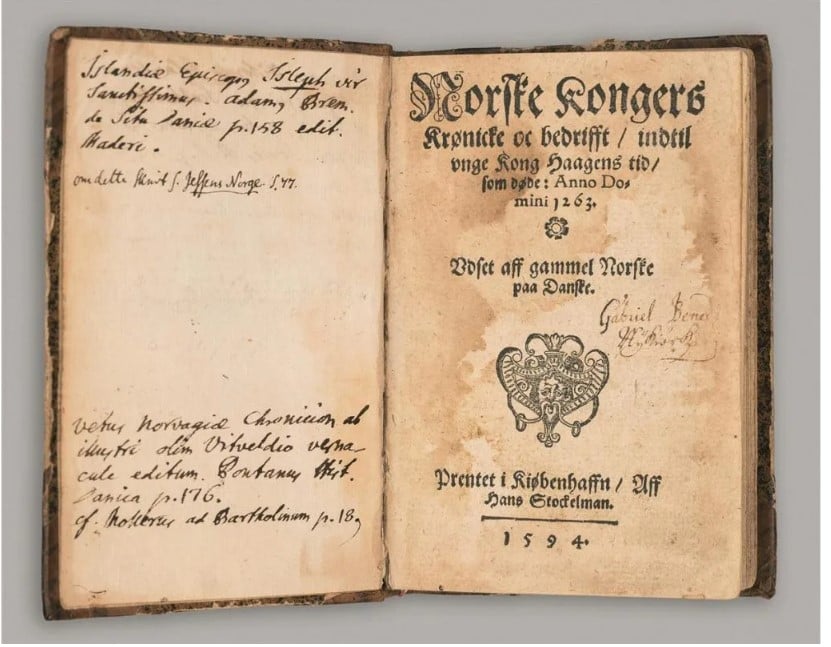 Islandiæ Episcop, Isleph vir
Sanctissimus. Adam, Brem.
de Situ Daniæ p. 158 edit.
Maderi.
om dette skrift s. Jessens Norge S. 77.
vetus Norvagiæ Chronicon ab
illustri olim Vitveldio verna-
cule editum. Pontanus Hist.
Danica p. 176.
cf. Mollerus ad Bartholinum p. 18
Norske Kongers
Krønicke oc bedrifft / indtil
vnge Kong Haagens tid/
som døde: Anno Do-
mini 1263.
Vdset aff gammel Norske
paa Danske.
Gabriel
Prentet i Kiøbenhaffn / Aff
Hans Stockelman.
1594.